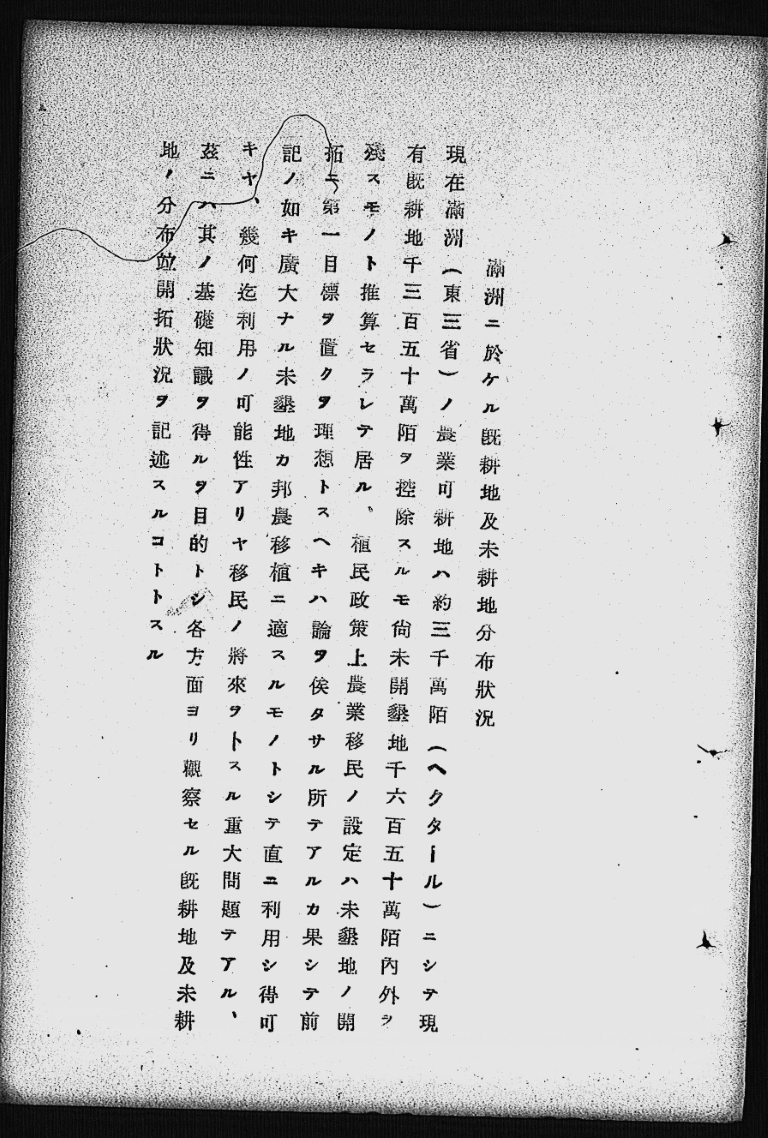 滿洲ニ於ケル既耕地及未耕地分布狀況
現在滿洲(東三省)ノ農業可耕地ハ約三千萬陌(ヘクタール)ニシテ現
有既耕地千三百五十萬陌ヲ控除スルモ尚未開墾地千六百五十萬陌內外ヲ
殘スモノト推算セラレテ居ル、植民政策上農業移民ノ設定ハ未墾地ノ開
拓ニ第一目標ヲ置クヲ理想トスヘキハ論ヲ俟タサル所テアルカ果シテ前
記ノ如キ廣大ナル未墾地カ邦農移植ニ適スルモノトシテ直ニ利用シ得可
キヤ、幾何迄利用ノ可能性アリヤ移民ノ將來ヲトスル重大問題テアル、
茲ニハ其ノ基礎知識ヲ得ルヲ目的トシ各方面ヨリ觀察セル既耕地及未耕
地ノ分布竝開拓狀況ヲ記述スルコトトスル